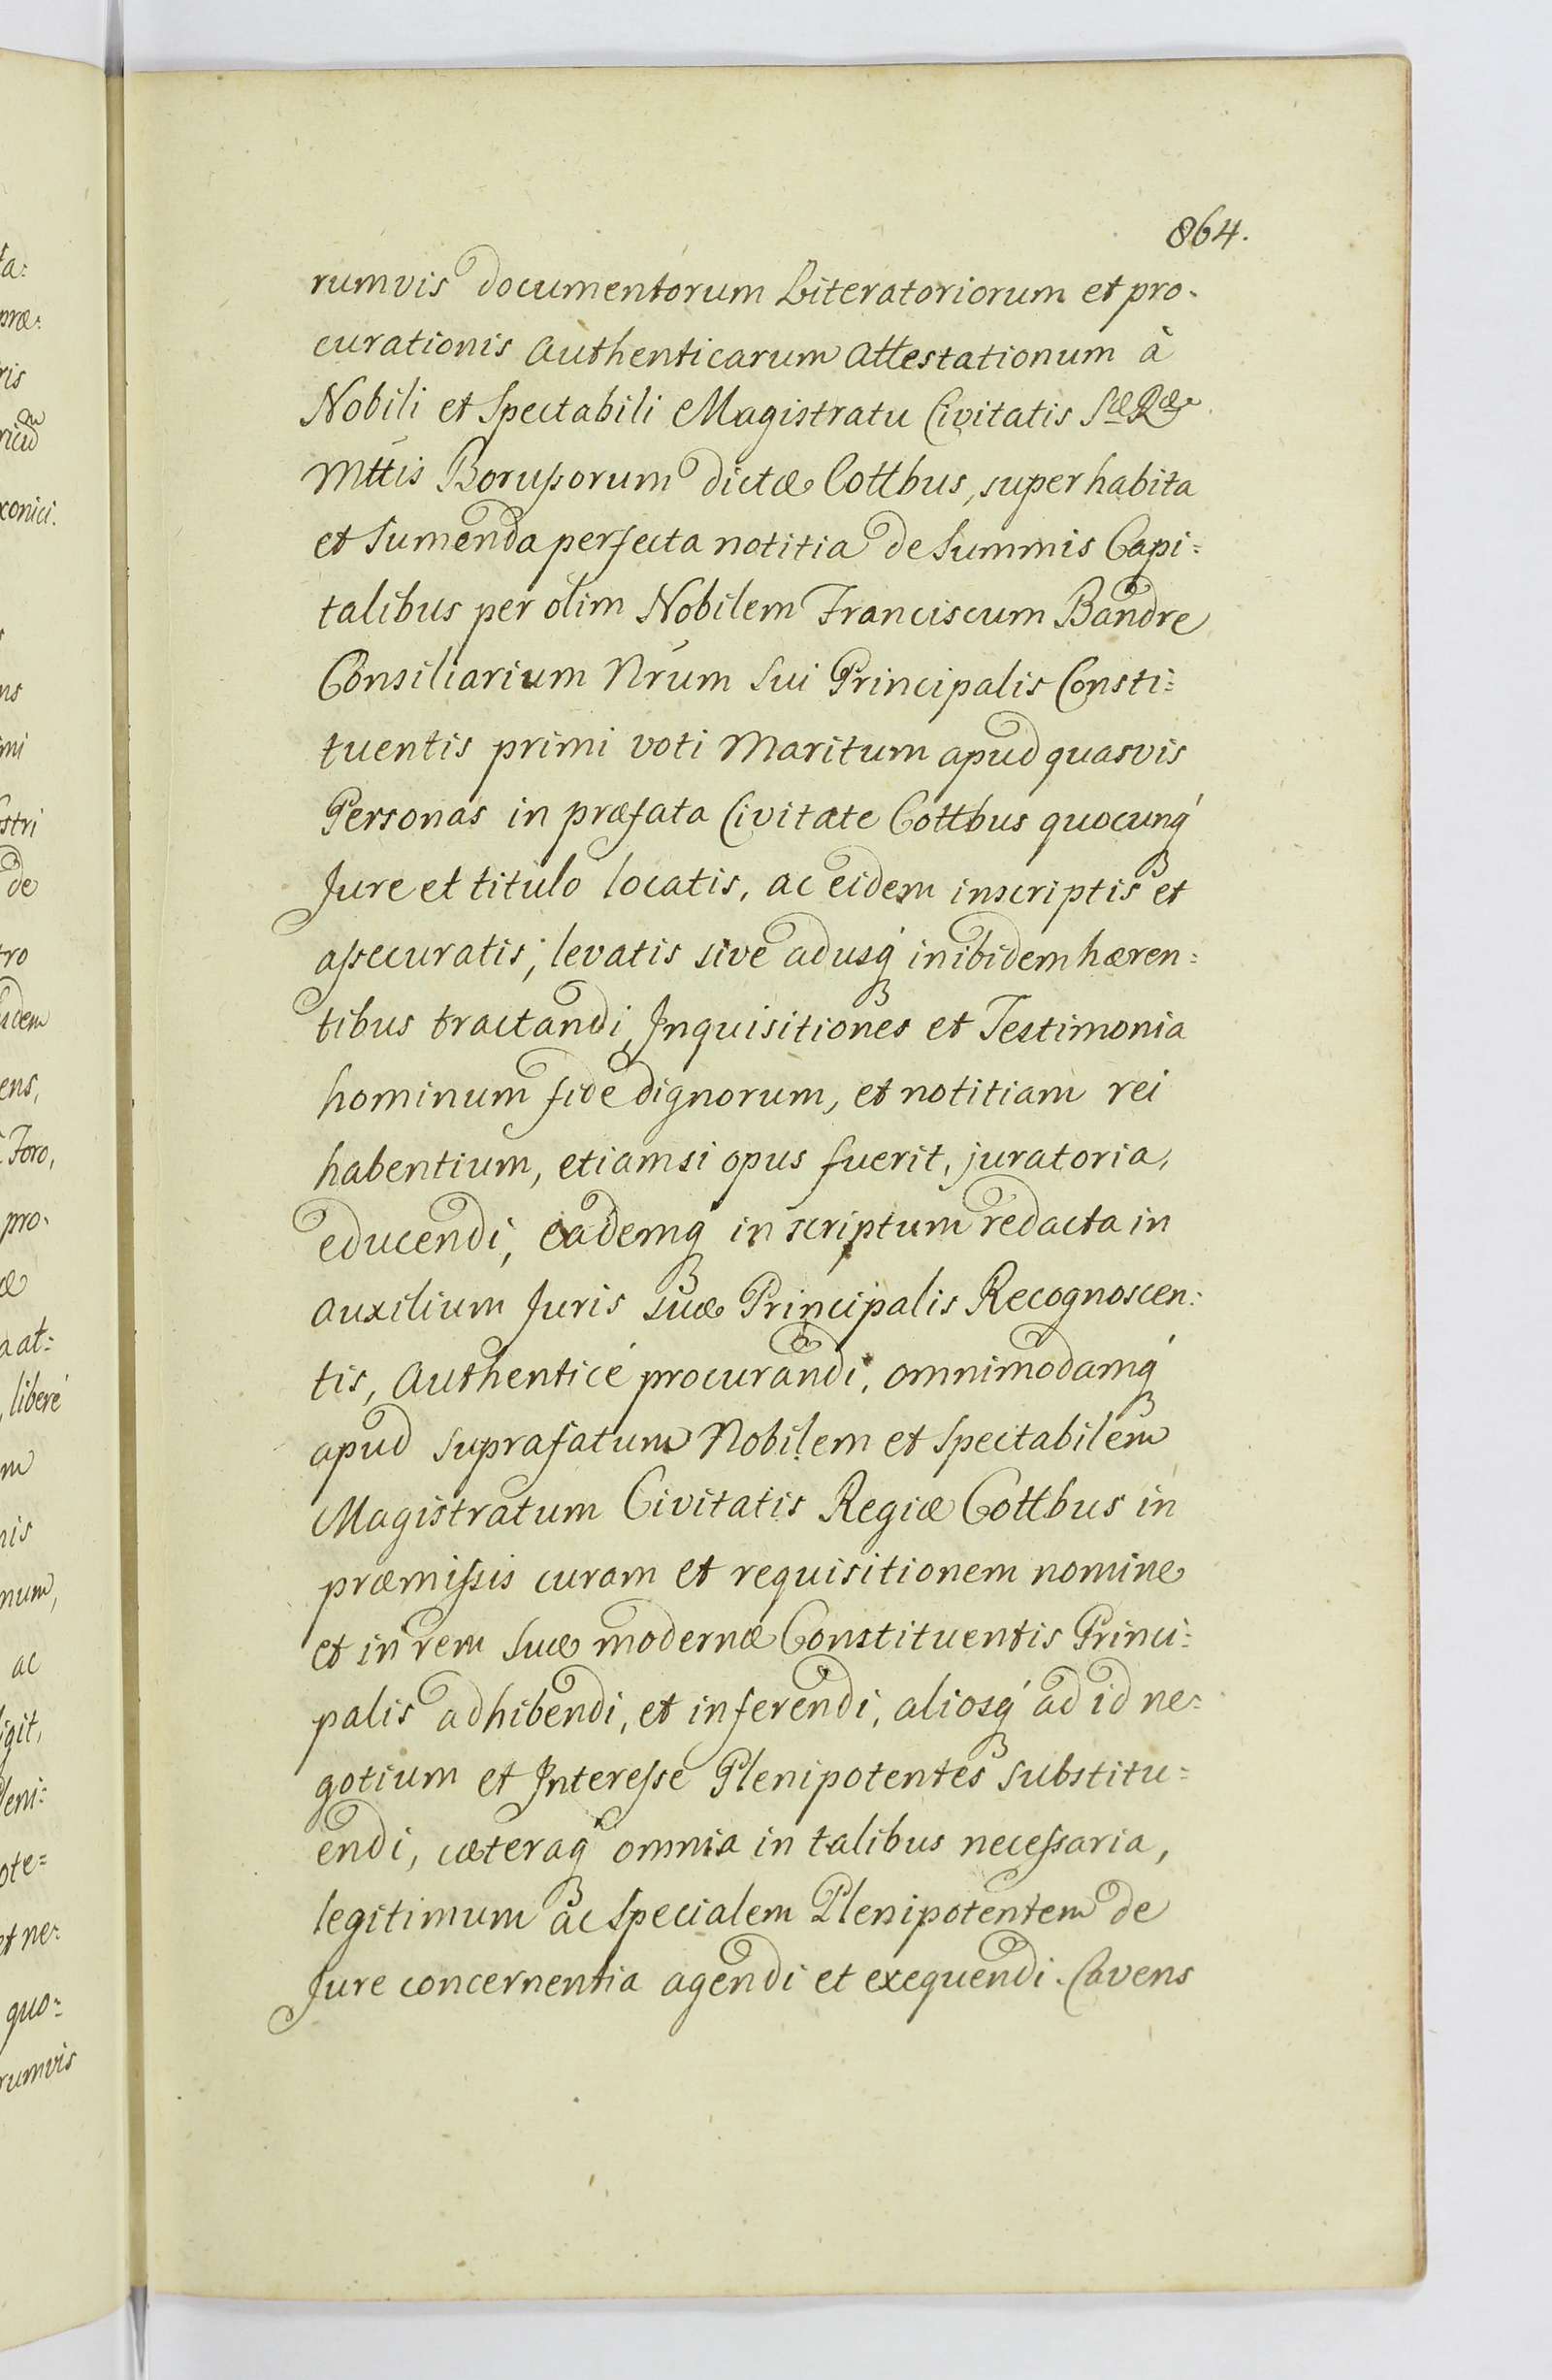 864.
rumvis documentorum Literatoriorum et pro-
curationis Authenticarum Attestationum à
Nobili et Spectabili Magistratu Civitatis Sæ Ræ
Mttis Borussorum dictæ Cottbus, super habita
et sumenda perfecta notitia de Summis Capi=
talibus per olim Nobilem Franciscum Bandre
Consiliarium Nrum sui Principalis Consti=
tuentis primi voti Maritum apud quasvis
Personas in præfata Civitate Cottbus quocunq́
Jure et titulo locatis, ac eidem inscriptis et
assecuratis, levatis sive adusq́ inibidem hæren=
tibus tractandi, Inquisitiones et Testimonia
hominum fide dignorum, et notitiam rei
habentium, etiamsi opus fuerit, juratoria,
educendi, eademq́ in scriptum redacta in
auxilium Juris suæ Principalis Recognoscen=
tis, Authenticé procurandi, omnimodamq́
apud suprafatum Nobilem et Spectabilem
Magistratum Civitatis Regiæ Cottbus in
præmissis curam et requisitionem nomine
et in rem suæ modernæ Constituentis Princi=
palis adhibendi, et inferendi, aliosq́ ad id ne=
gotium et Interesse Plenipotentes substitu=
endi, cæteraq́ omnia in talibus necessaria,
legitimum ac specialem Plenipotentem de
Jure concernentia agendi et exequendi. Cavens